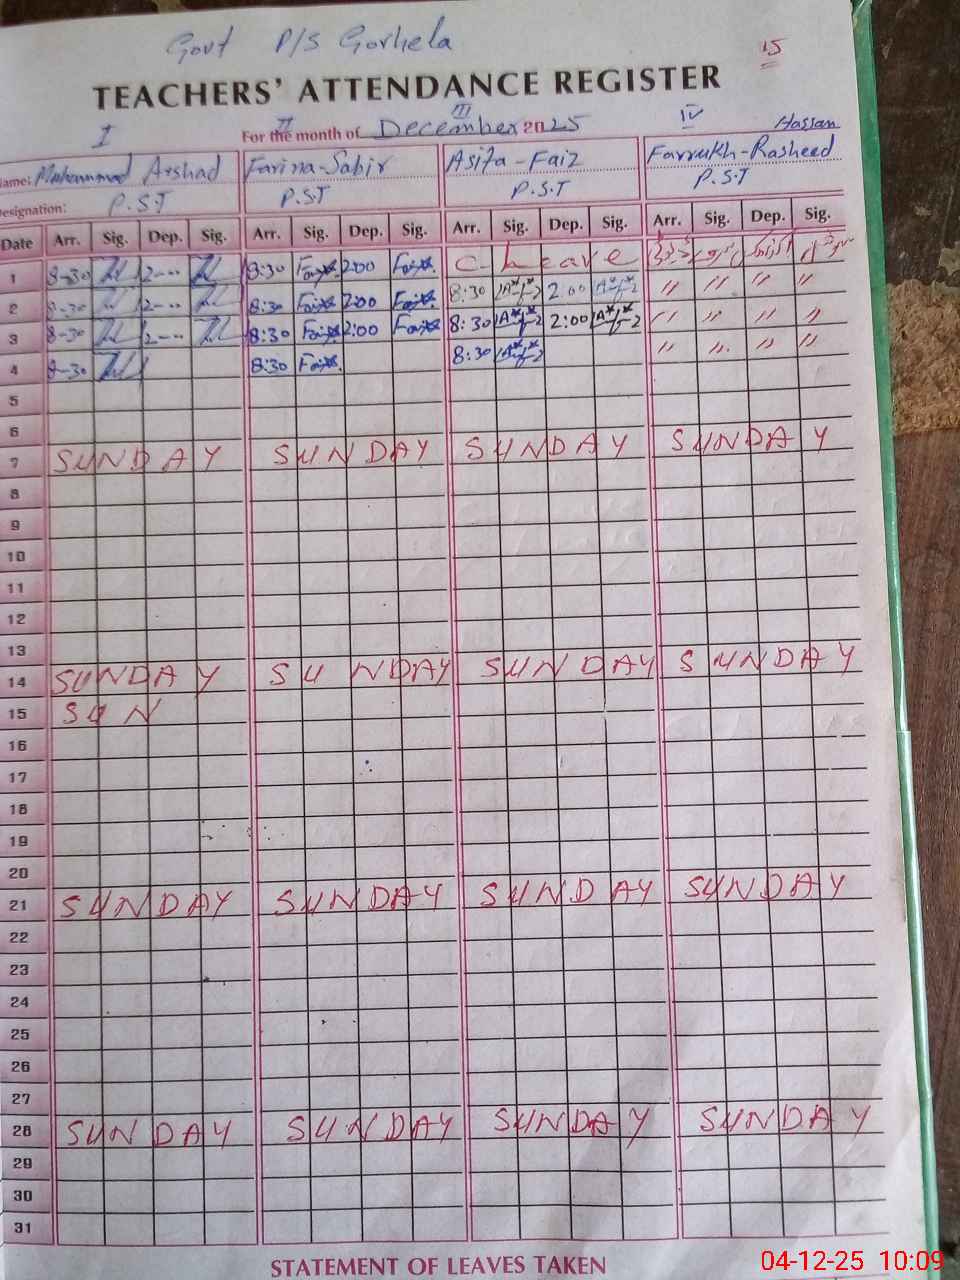 Govt P/S Gorhela
15
TEACHERS' ATTENDANCE REGISTER
I II III IV
For the month of December 2025
Hassan
Name: Muhammad Arshad Farina-Sabir Asifa-Faiz Farrukh-Rasheed
Designation: P.S.T P.S.T P.S.T P.S.T
Date Arr. Sig. Dep. Sig. Arr. Sig. Dep. Sig. Arr. Sig. Dep. Sig. Arr. Sig. Dep. Sig.
1 8-30 2--- 8:30 2:00 C- Leave
2 8-30 2--- 8:30 2:00 8:30 2:00 " " " "
3 8-30 2--- 8:30 2:00 8:30 2:00 " " " "
4 8-30 8:30 8:30 " " " "
5
6
7 SUNDAY SUNDAY SUNDAY SUNDAY
8
9
10
11
12
13
14 SUNDAY SUNDAY SUNDAY SUNDAY
15 SUN
16
17
18
19
20
21 SUNDAY SUNDAY SUNDAY SUNDAY
22
23
24
25
26
27
28 SUNDAY SUNDAY SUNDAY SUNDAY
29
30
31
STATEMENT OF LEAVES TAKEN
04-12-25 10:09